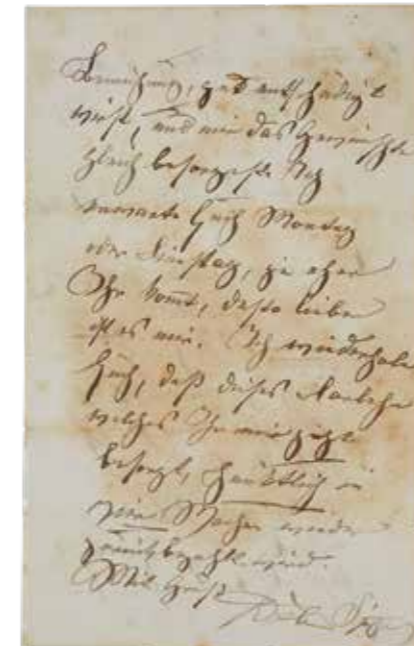 Bemühung, gut entschädigt
wirst, und mir das Gewünschte
gleich besorgest. Ich
erwarte Euch Montag
oder Dienstag, je eher
Ihr kommt, desto lieber
ist es mir. Ich wiederhole
Euch, daß dieses Darlehn
welches Ihr mir jetzt
besorgt, pünktlich in
vier Wochen wieder
zurückbezahlt wird.
Mit Gruß